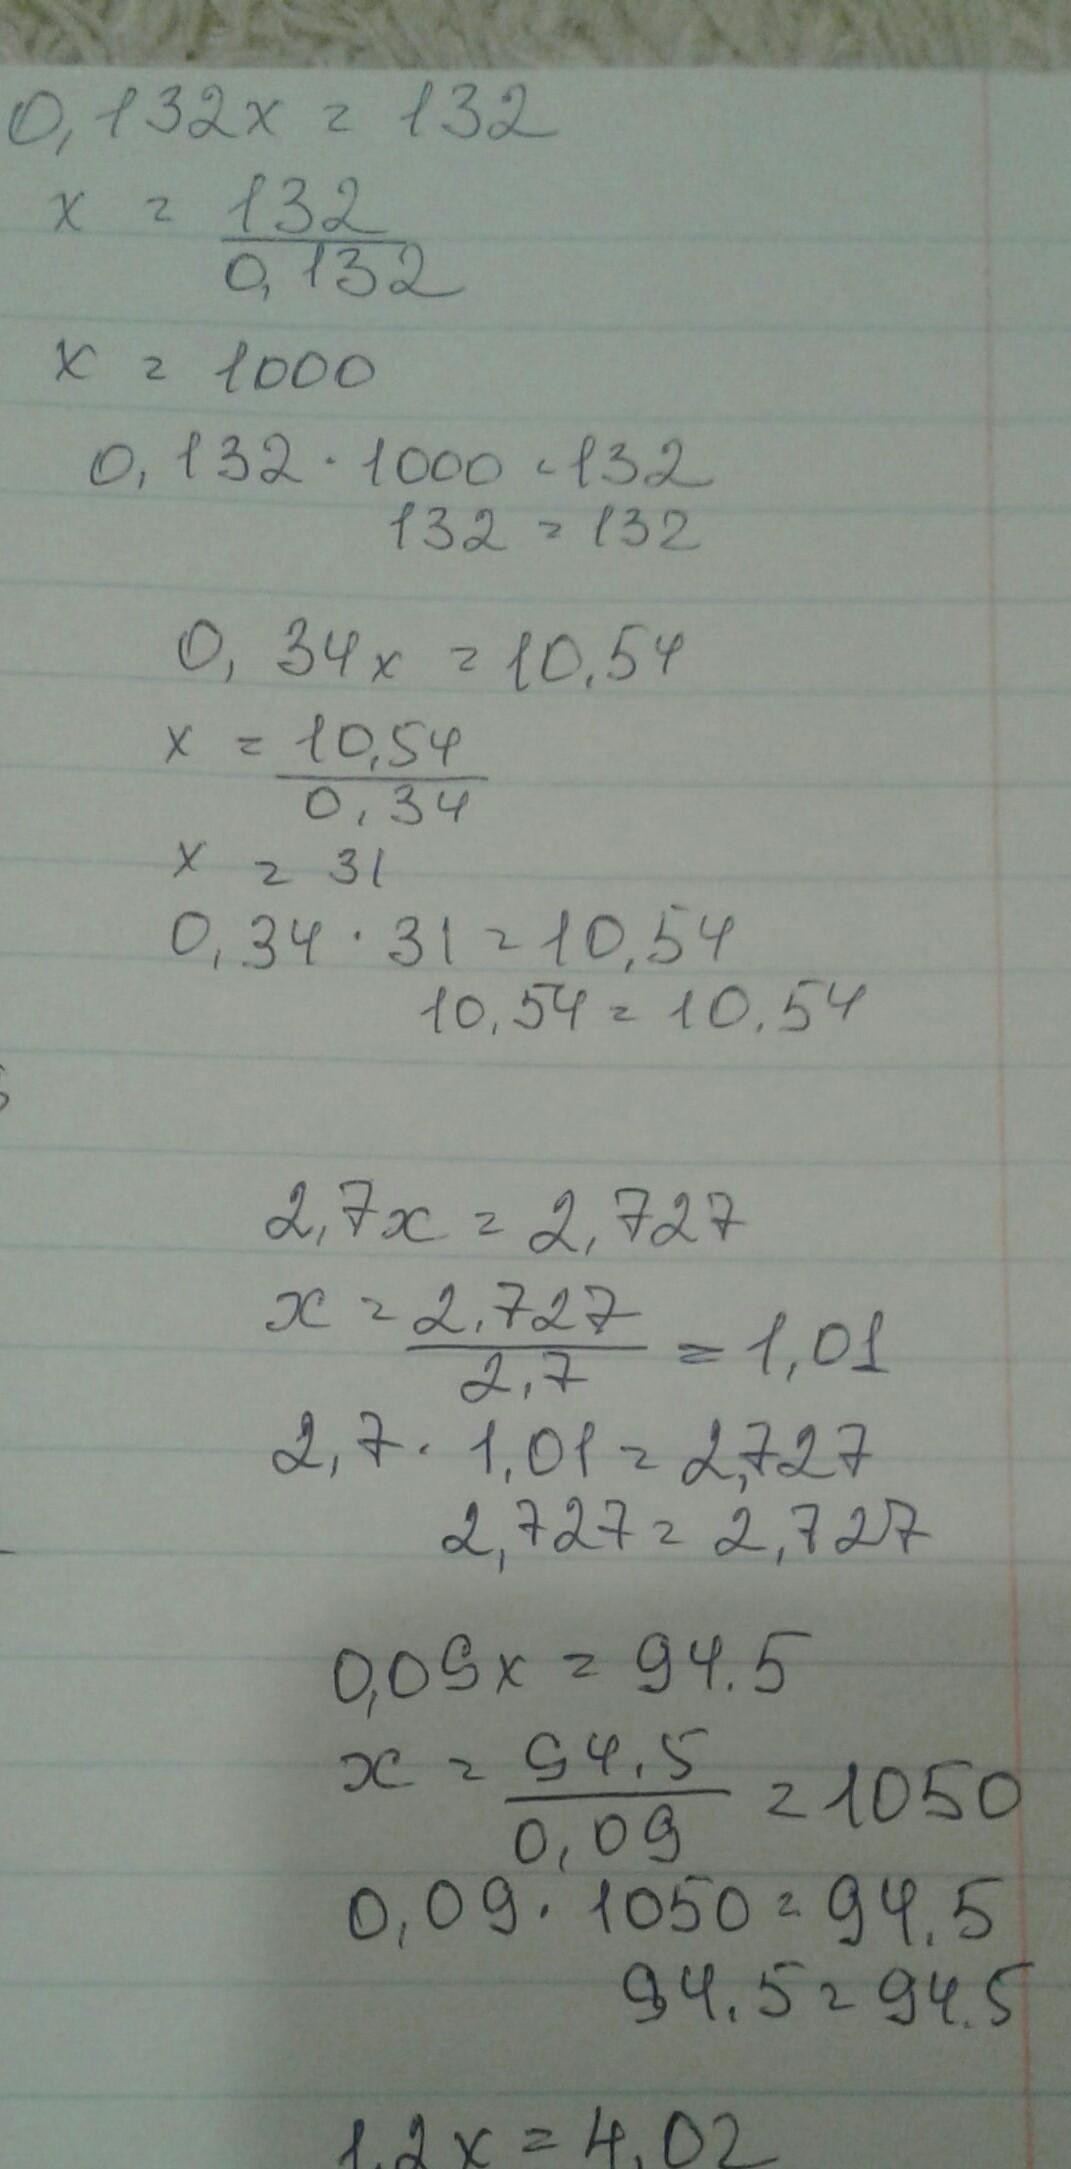 0,132x = 132
x = 132/0,132
x = 1000
0,132 · 1000 = 132
132 = 132
0,34x = 10,54
x = 10,54/0,34
x = 31
0,34 · 31 = 10,54
10,54 = 10,54
2,7x = 2,727
x = 2,727/2,7 = 1,01
2,7 · 1,01 = 2,727
2,727 = 2,727
0,09x = 94,5
x = 94,5/0,09 = 1050
0,09 · 1050 = 94,5
94,5 = 94,5
1,2x = 4,02